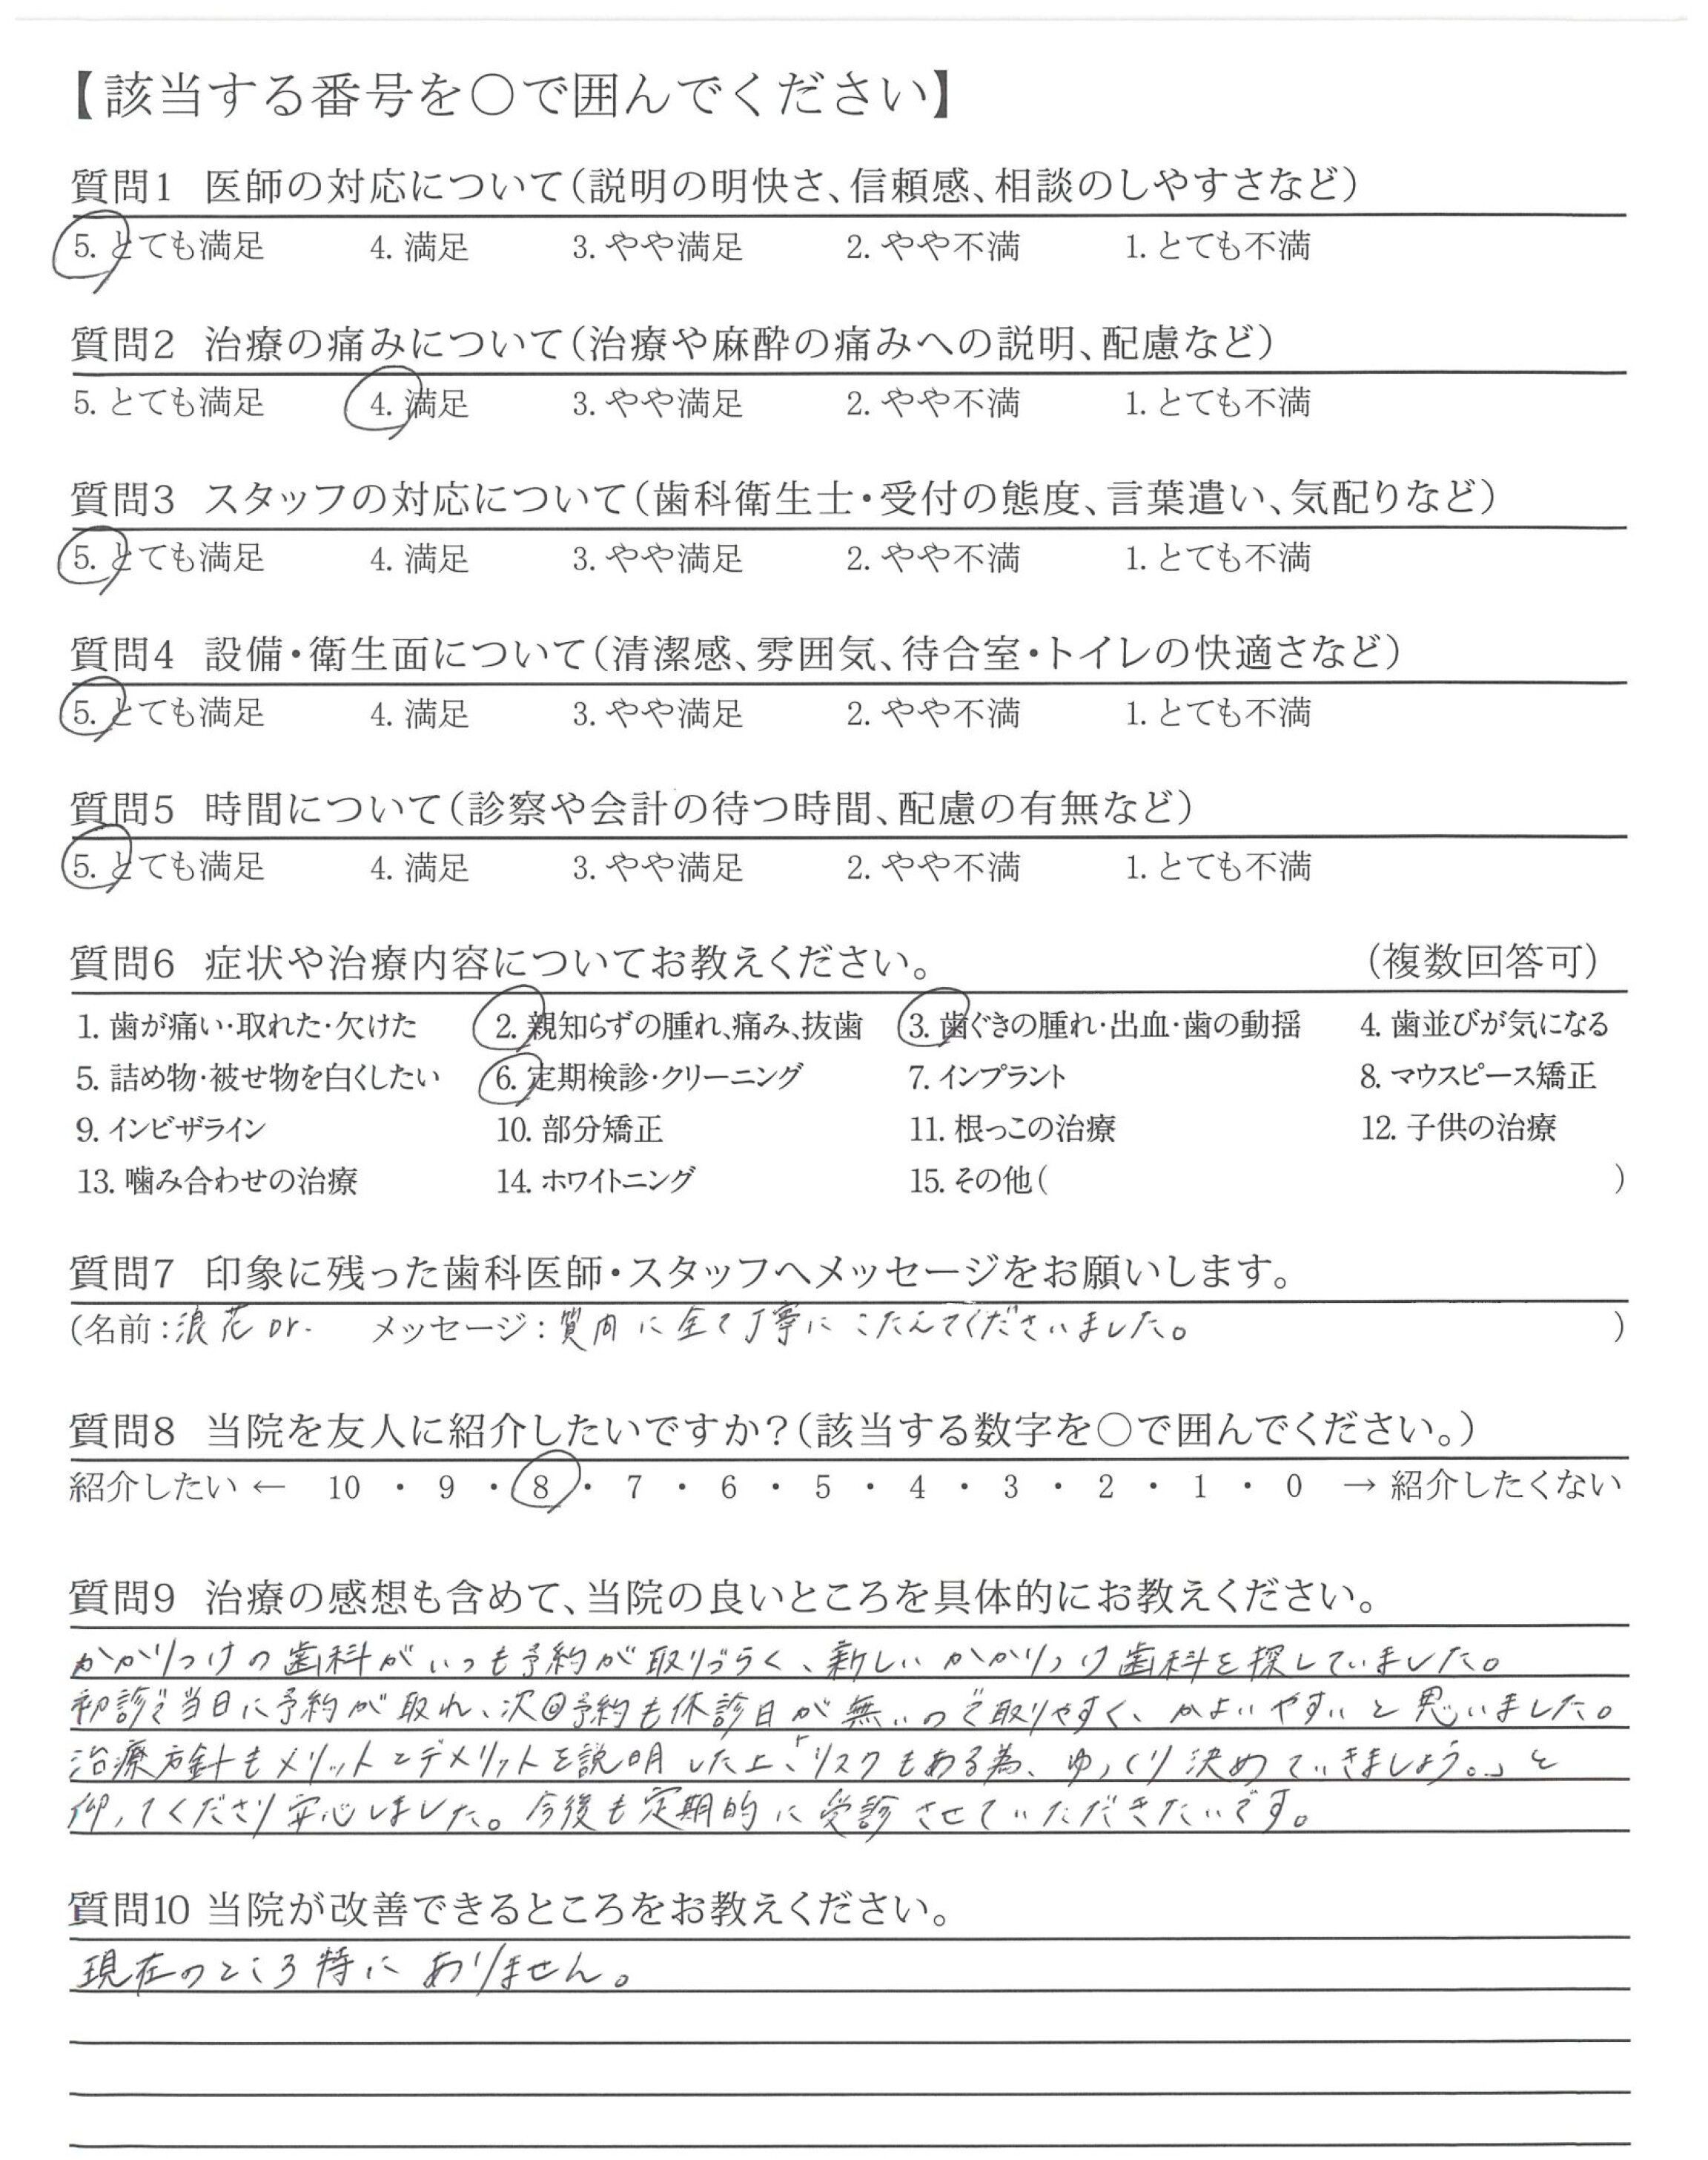 【該当する番号を○で囲んでください】
質問1 医師の対応について(説明の明快さ、信頼感、相談のしやすさなど)
5. とても満足 4. 満足 3. やや満足 2. やや不満 1. とても不満
質問2 治療の痛みについて(治療や麻酔の痛みへの説明、配慮など)
5. とても満足 4. 満足 3. やや満足 2. やや不満 1. とても不満
質問3 スタッフの対応について(歯科衛生士・受付の態度、言葉遣い、気配りなど)
5. とても満足 4. 満足 3. やや満足 2. やや不満 1. とても不満
質問4 設備・衛生面について(清潔感、雰囲気、待合室・トイレの快適さなど)
5. とても満足 4. 満足 3. やや満足 2. やや不満 1. とても不満
質問5 時間について(診察や会計の待つ時間、配慮の有無など)
5. とても満足 4. 満足 3. やや満足 2. やや不満 1. とても不満
質問6 症状や治療内容についてお教えください。 (複数回答可)
1. 歯が痛い・取れた・欠けた 2. 親知らずの腫れ、痛み、抜歯 3. 歯ぐきの腫れ・出血・歯の動揺 4. 歯並びが気になる
5. 詰め物・被せ物を白くしたい 6. 定期検診・クリーニング 7. インプラント 8. マウスピース矯正
9. インビザライン 10. 部分矯正 11. 根っこの治療 12. 子供の治療
13. 噛み合わせの治療 14. ホワイトニング 15. その他( )
質問7 印象に残った歯科医師・スタッフへメッセージをお願いします。
(名前：浪花Dr. メッセージ：質問に全て丁寧にこたえてくださいました。 )
質問8 当院を友人に紹介したいですか？(該当する数字を○で囲んでください。)
紹介したい ← 10 ・ 9 ・ 8 ・ 7 ・ 6 ・ 5 ・ 4 ・ 3 ・ 2 ・ 1 ・ 0 → 紹介したくない
質問9 治療の感想も含めて、当院の良いところを具体的にお教えください。
かかりつけの歯科がいつも予約が取りづらく、新しいかかりつけ歯科を探していました。
初診で当日に予約が取れ、次回予約も休診日が無いので取りやすく、かよいやすいと思いました。
治療方針もメリットとデメリットを説明した上、「リスクもある為、ゆっくり決めていきましょう。」と
仰ってくださり安心しました。今後も定期的に受診させていただきたいです。
質問10 当院が改善できるところをお教えください。
現在のところ特にありません。